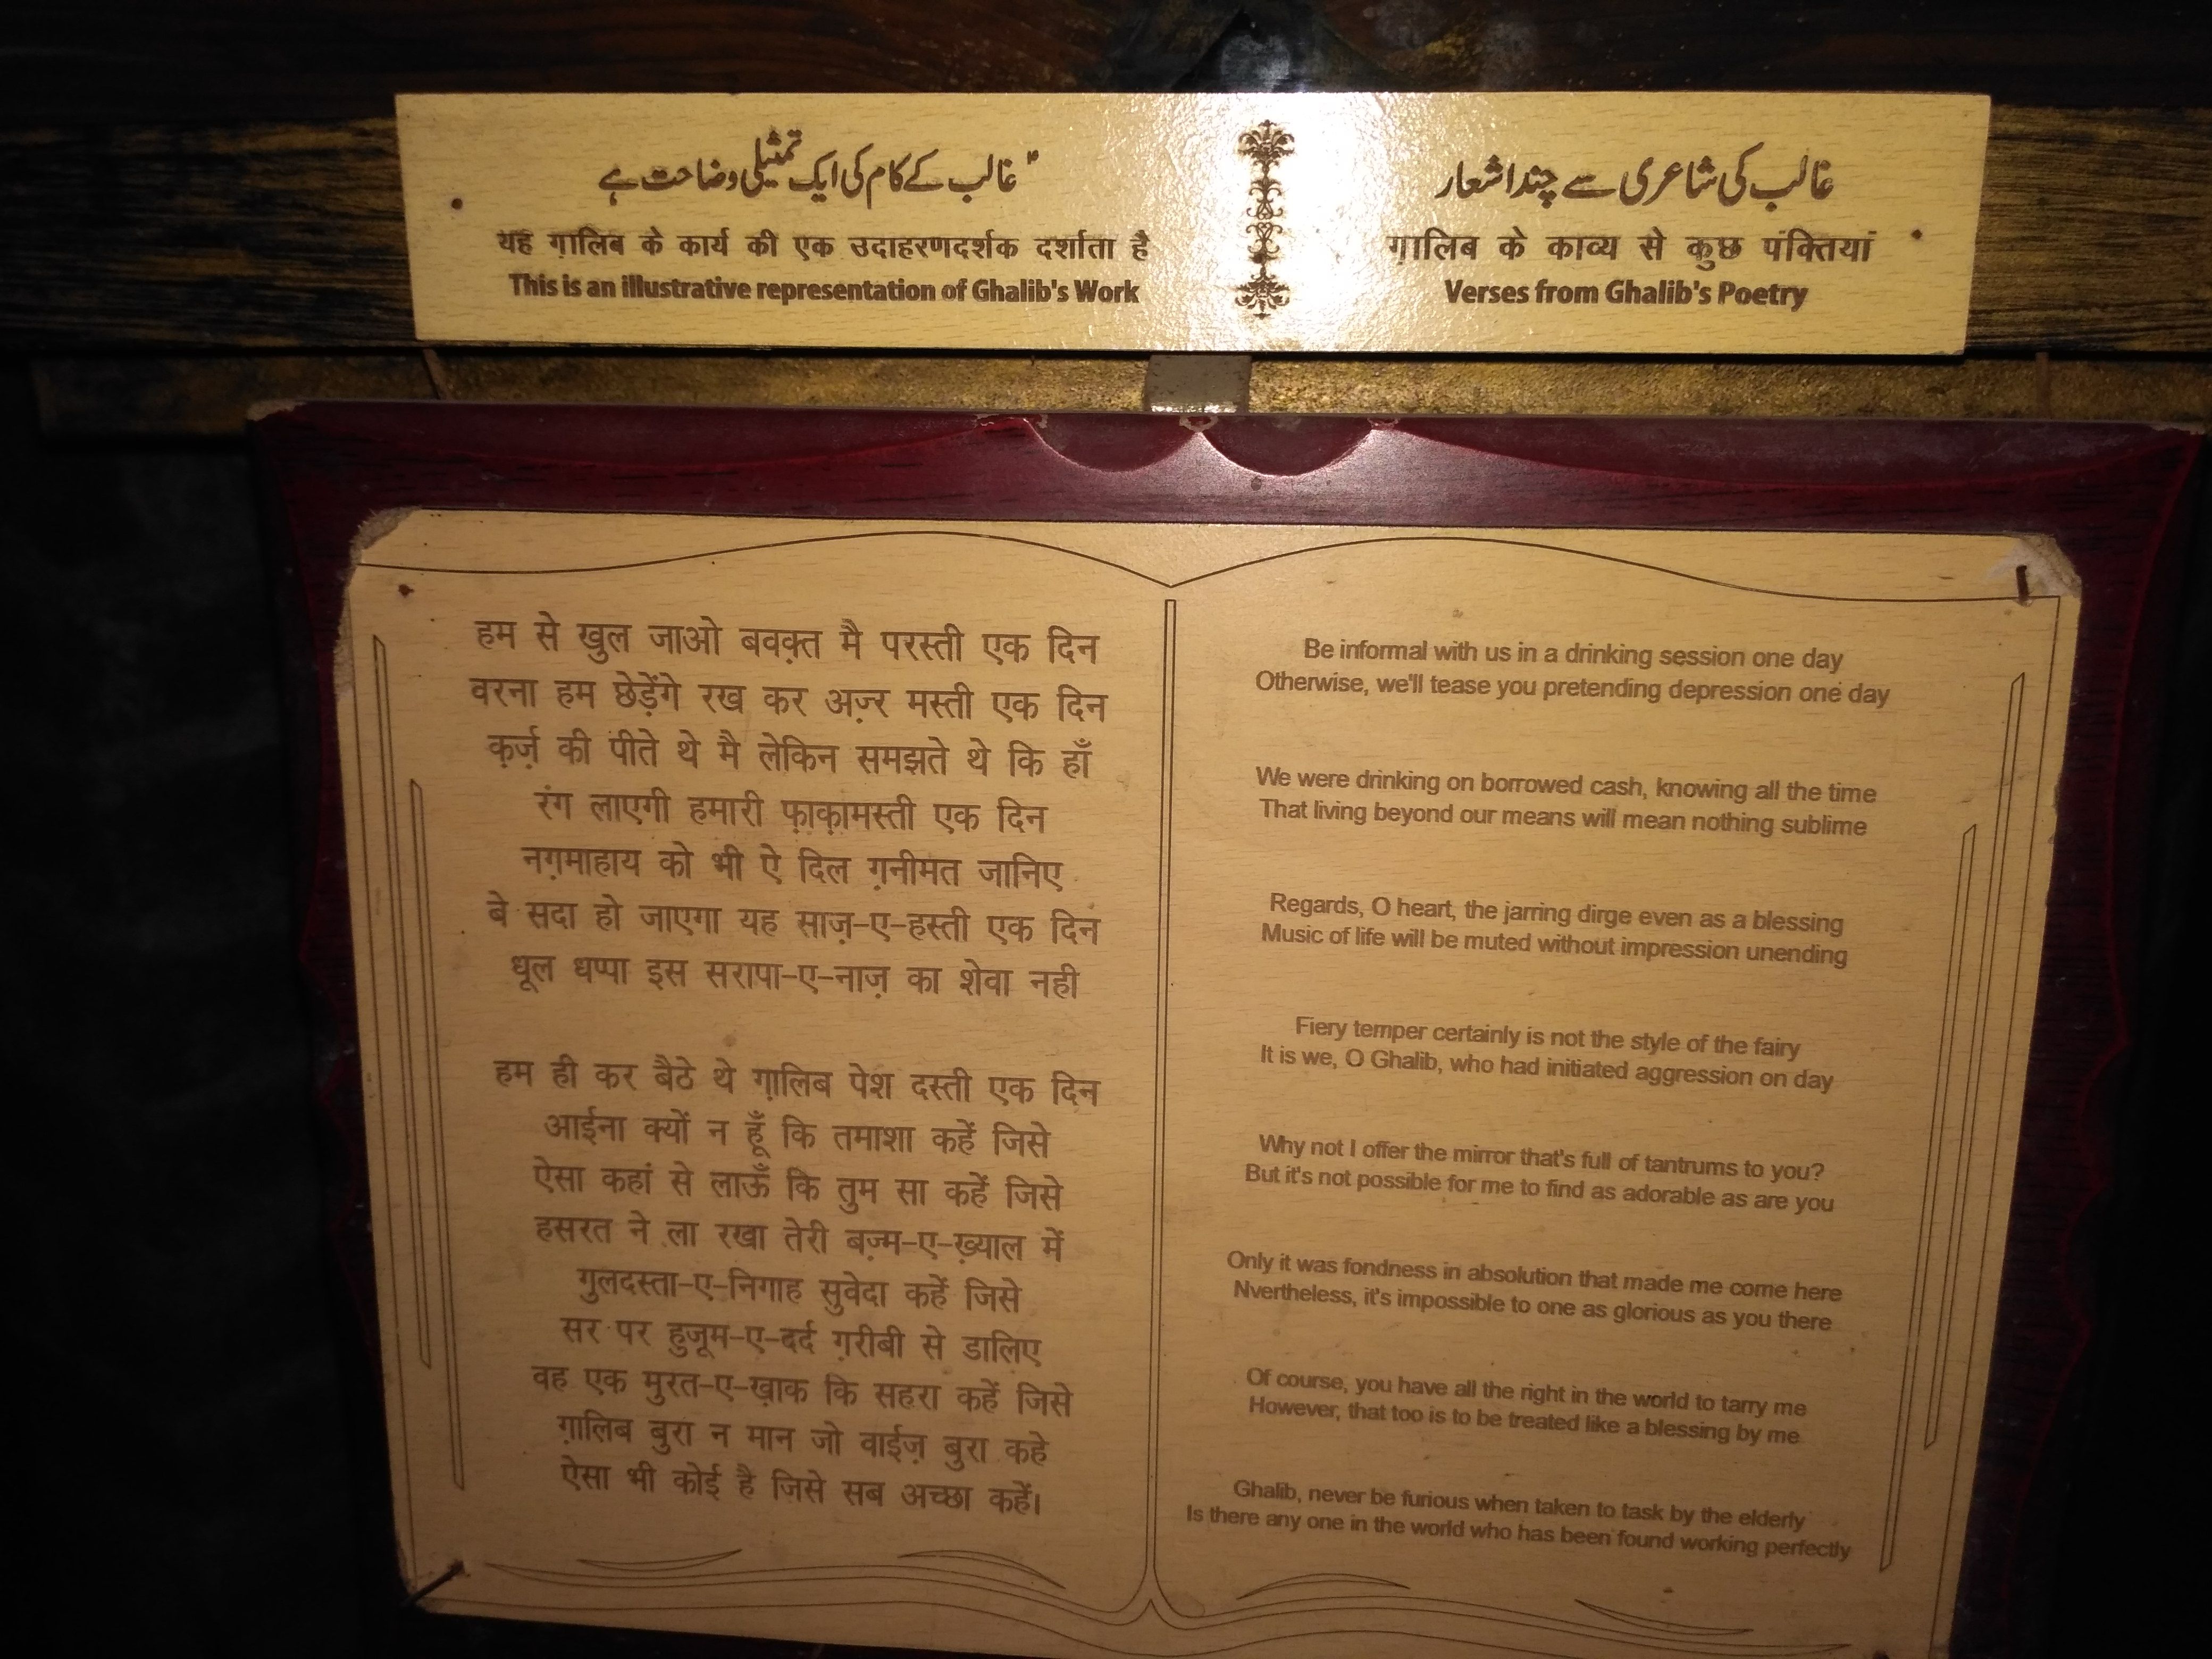 غالب کے کام کی ایک تمثیلی وضاحت ہے
यह ग़ालिब के कार्य की एक उदाहरणदर्शक दर्शाता है
This is an illustrative representation of Ghalib's Work
غالب کی شاعری سے چند اشعار
ग़ालिब के काव्य से कुछ पंक्तियां
Verses from Ghalib's Poetry
हम से खुल जाओ बवक़्त मै परस्ती एक दिन
वरना हम छेड़ेंगे रख कर अज़्र मस्ती एक दिन
क़र्ज़ की पीते थे मै लेकिन समझते थे कि हाँ
रंग लाएगी हमारी फ़ाक़ामस्ती एक दिन
नग़माहाय को भी ऐ दिल ग़नीमत जानिए
बे सदा हो जाएगा यह साज़-ए-हस्ती एक दिन
धूल धप्पा इस सरापा-ए-नाज़ का शेवा नही
हम ही कर बैठे थे ग़ालिब पेश दस्ती एक दिन
आईना क्यों न हूँ कि तमाशा कहें जिसे
ऐसा कहां से लाऊँ कि तुम सा कहें जिसे
हसरत ने ला रखा तेरी बज़्म-ए-ख़्याल में
गुलदस्ता-ए-निगाह सुवेदा कहें जिसे
सर पर हुजूम-ए-दर्द ग़रीबी से डालिए
वह एक मुरत-ए-ख़ाक कि सहरा कहें जिसे
ग़ालिब बुरा न मान जो वाईज़ बुरा कहे
ऐसा भी कोई है जिसे सब अच्छा कहें।
Be informal with us in a drinking session one day
Otherwise, we'll tease you pretending depression one day
We were drinking on borrowed cash, knowing all the time
That living beyond our means will mean nothing sublime
Regards, O heart, the jarring dirge even as a blessing
Music of life will be muted without impression unending
Fiery temper certainly is not the style of the fairy
It is we, O Ghalib, who had initiated aggression on day
Why not I offer the mirror that's full of tantrums to you?
But it's not possible for me to find as adorable as are you
Only it was fondness in absolution that made me come here
Nvertheless, it's impossible to one as glorious as you there
Of course, you have all the right in the world to tarry me
However, that too is to be treated like a blessing by me
Ghalib, never be furious when taken to task by the elderly
Is there any one in the world who has been found working perfectly